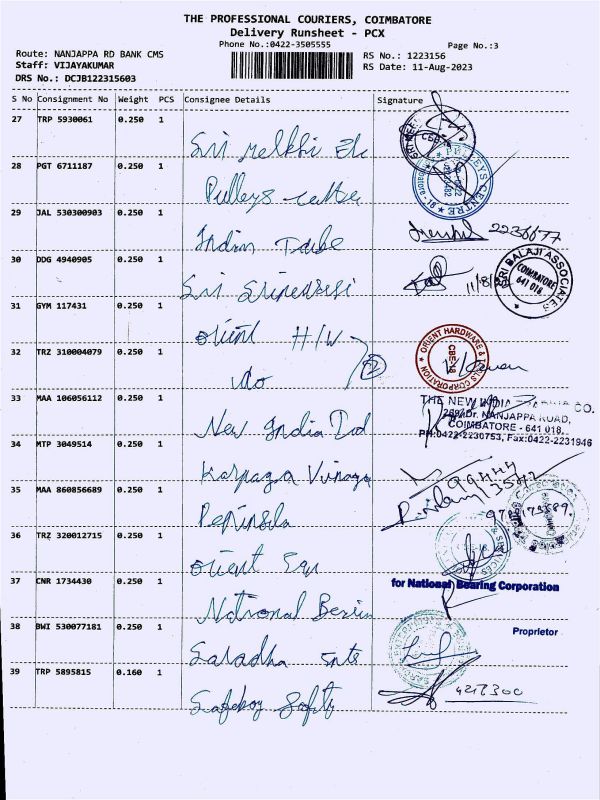 THE PROFESSIONAL COURIERS, COIMBATORE
Delivery Runsheet - PCX
Phone No.:0422-3505555
Page No.:3
Route: NANJAPPA RD BANK CMS
RS No.: 1223156
Staff: VIJAYAKUMAR
RS Date: 11-Aug-2023
DRS No.: DCJB122315603
S No Consignment No Weight PCS Consignee Details Signature
27 TRP 5930061 0.250 1
Sri
28 PGT 6711187 0.250 1
Pulleys centre
29 JAL 530300903 0.250 1
Indian Tube
2236677
30 DDG 4940905 0.250 1
Sri
11/8/
SRI BALAJI ASSOCIATES
COIMBATORE
641 018
31 GYM 117431 0.250 1
Orient H/W
ORIENT HARDWARE & TOOLS CORPORATION
CBE-18
32 TRZ 310004079 0.250 1
do
2
33 MAA 106056112 0.250 1
New India
THE NEW INDIA CO.
Dr. NANJAPPA ROAD,
COIMBATORE - 641 018.
PH:0422-2230753, Fax:0422-2231946
34 MTP 3049514 0.250 1
Karpaga Vinaga
99444
35 MAA 860856689 0.250 1
Peninsula
36 TRZ 320012715 0.250 1
Orient Equ
37 CNR 1734430 0.250 1
for National Bearing Corporation
National Bearin
38 BWI 530077181 0.250 1
Proprietor
Saradha Ente
39 TRP 5895815 0.160 1
4217300
Safety